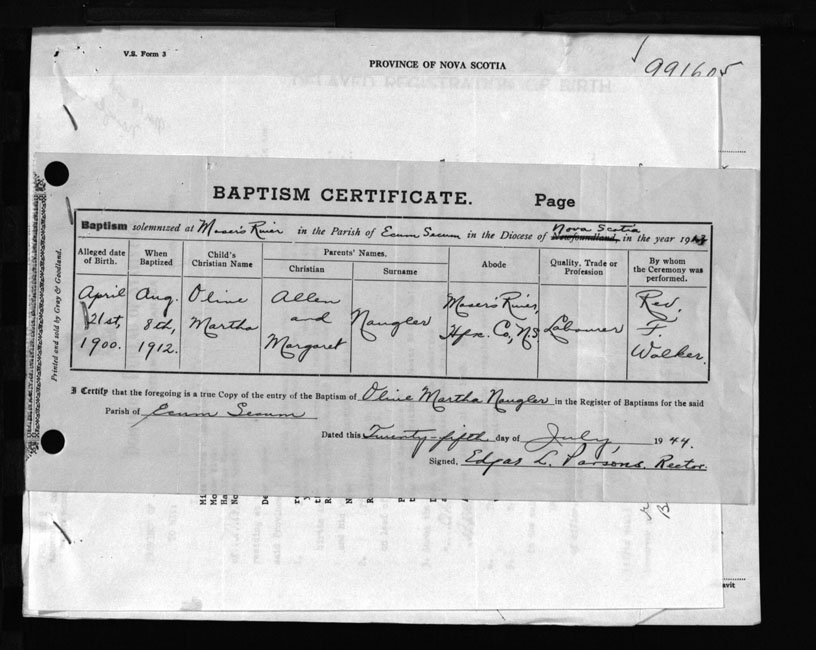 V.S. Form 3
PROVINCE OF NOVA SCOTIA
991605
BAPTISM CERTIFICATE. Page
Baptism solemnized at Moser's River in the Parish of Ecum Secum in the Diocese of Nova Scotia Newfoundland, in the year 19
Alleged date of Birth. When Baptized Child's Christian Name Parents' Names. Christian Surname Abode Quality, Trade or Profession By whom the Ceremony was performed.
April Aug. Oline Allen Moser's River, Rev.
21st, 8th, Martha and Naugler Hfx. Co., N.S. Labourer F.
1900. 1912. Margaret Walker.
I Certify that the foregoing is a true Copy of the entry of the Baptism of Oline Martha Naugler in the Register of Baptisms for the said
Parish of Ecum Secum
Dated this Twenty-fifth day of July, 1944.
Signed, Edgar L. Parsons, Rector.
Printed and sold by Gray & Goodland.